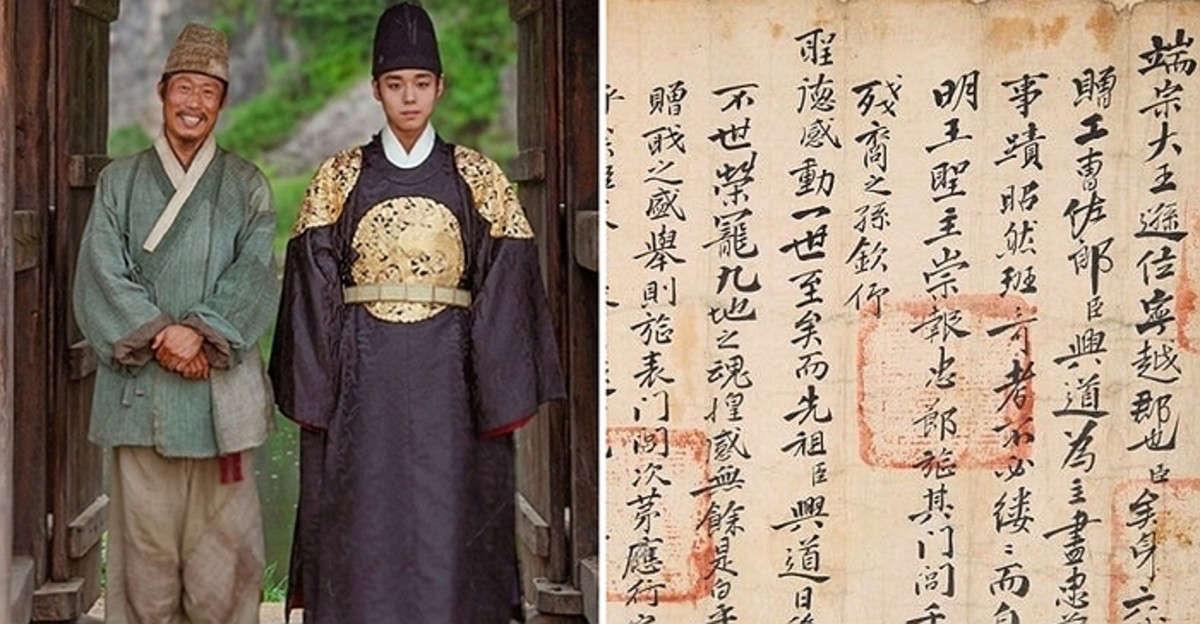 端宗大王遜位寧越郡也臣矣身六
贈工曹佐郎臣興道為主盡忠
事蹟昭然班〻可考者不必縷〻而自
明王聖主崇報忠節旌其門閭
殘裔之孫欽仰
聖德感動一世至矣而先祖臣興道日後
不世榮寵九地之魂惶感無餘是白乎
贈職之盛擧則旌表門閭次第應行